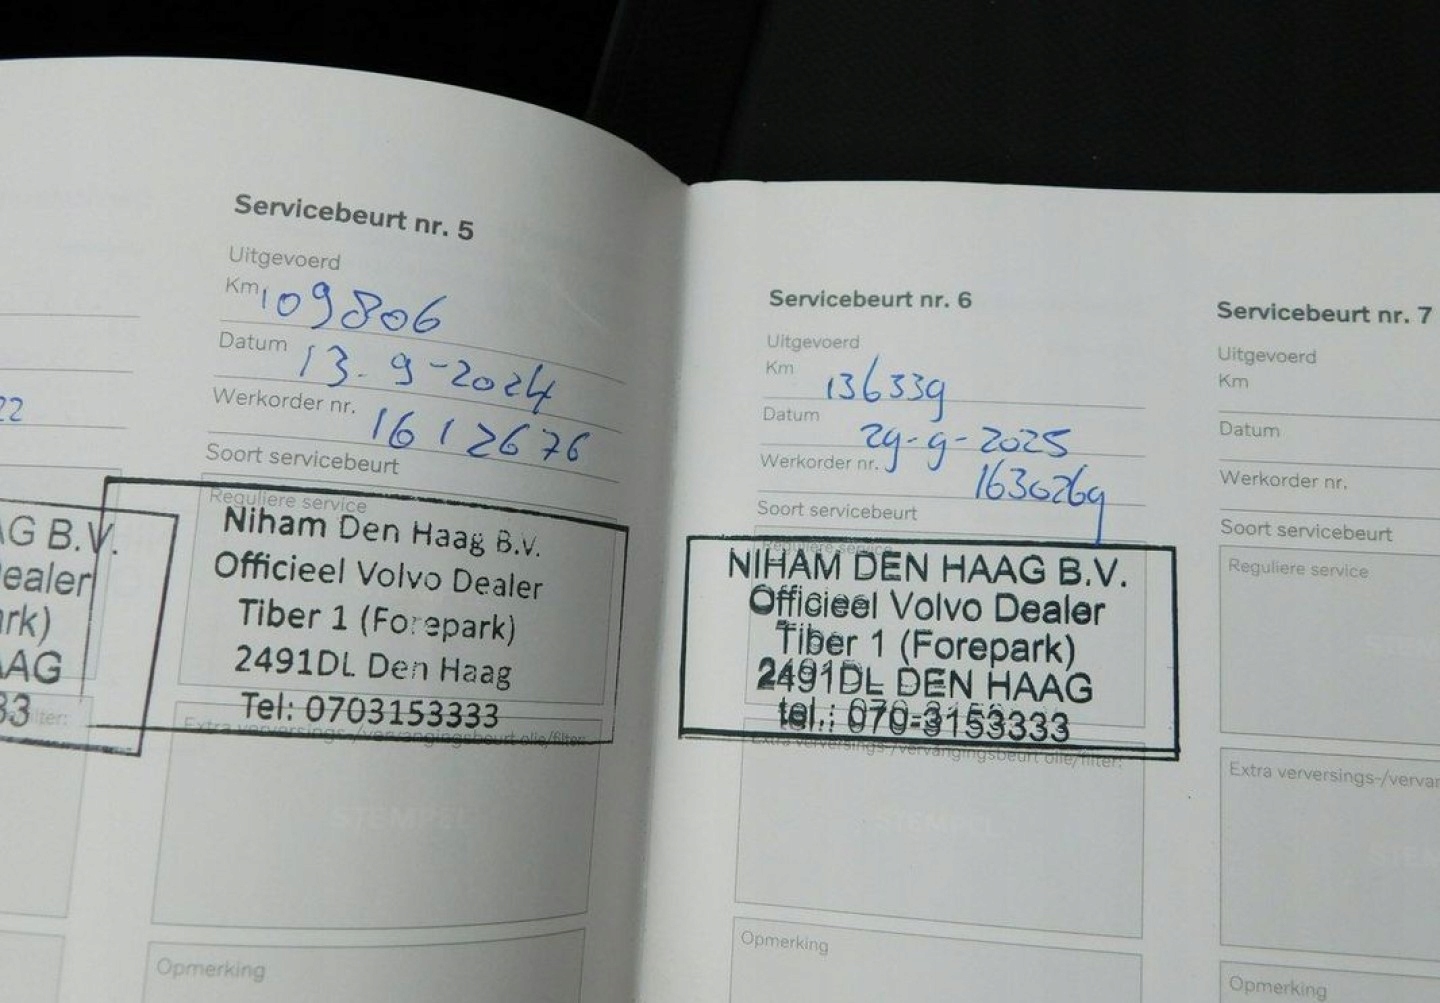 22
AG B.V.
ealer
ark)
AAG
33
ilter:
Servicebeurt nr. 5
Uitgevoerd
Km 109806
Datum 13-9-2024
Werkorder nr. 1612676
Soort servicebeurt
Reguliere service
Niham Den Haag B.V.
Officieel Volvo Dealer
Tiber 1 (Forepark)
2491DL Den Haag
Tel: 0703153333
Extra verversings-/vervangingsbeurt olie/filter:
STEMPEL
Opmerking
Servicebeurt nr. 6
Uitgevoerd
Km 136339
Datum 29-9-2025
Werkorder nr. 1630269
Soort servicebeurt
Reguliere service
NIHAM DEN HAAG B.V.
Officieel Volvo Dealer
Tiber 1 (Forepark)
2491DL DEN HAAG
tel.: 070-3153333
Extra verversings-/vervangingsbeurt olie/filter:
STEMPEL
Opmerking
Servicebeurt nr. 7
Uitgevoerd
Km
Datum
Werkorder nr.
Soort servicebeurt
Reguliere service
Extra verversings-/vervan
Opmerking